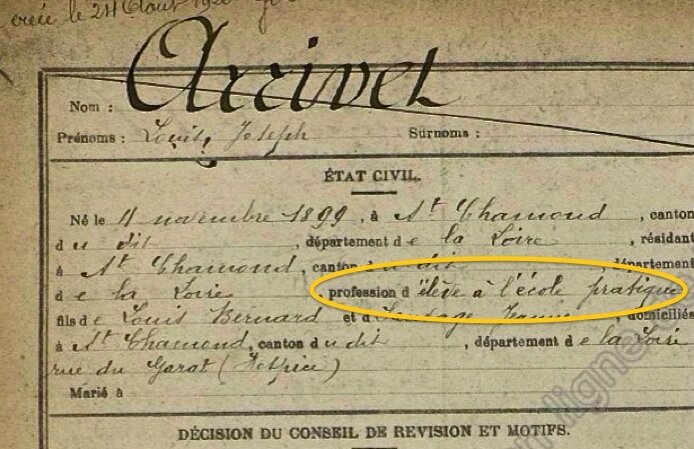 créée le 24 Août
Arrivet
Nom :
Prénoms : Louis Joseph Surnoms :
ÉTAT CIVIL.
Né le 11 novembre 1899, à St Chamond, canton
du dit, département de la Loire, résidant
à St Chamond, canton du dit, département
de la Loire profession d'élève à l'école pratique
fils de Louis Bernard et d Jeanne domiciliés
à St Chamond, canton du dit, département de la Loire
rue du Garat (Hospice)
Marié à
DÉCISION DU CONSEIL DE REVISION ET MOTIFS.
en ligne